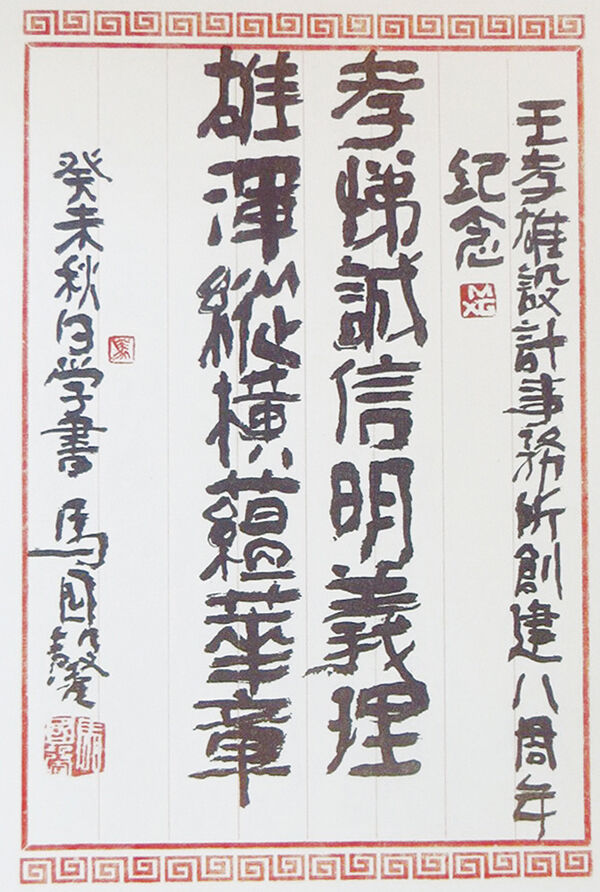 王孝雄設計事務所創建八周年
紀念
孝悌誠信明義理
雄渾縱橫蘊華章
癸未秋日学書 馬國馨